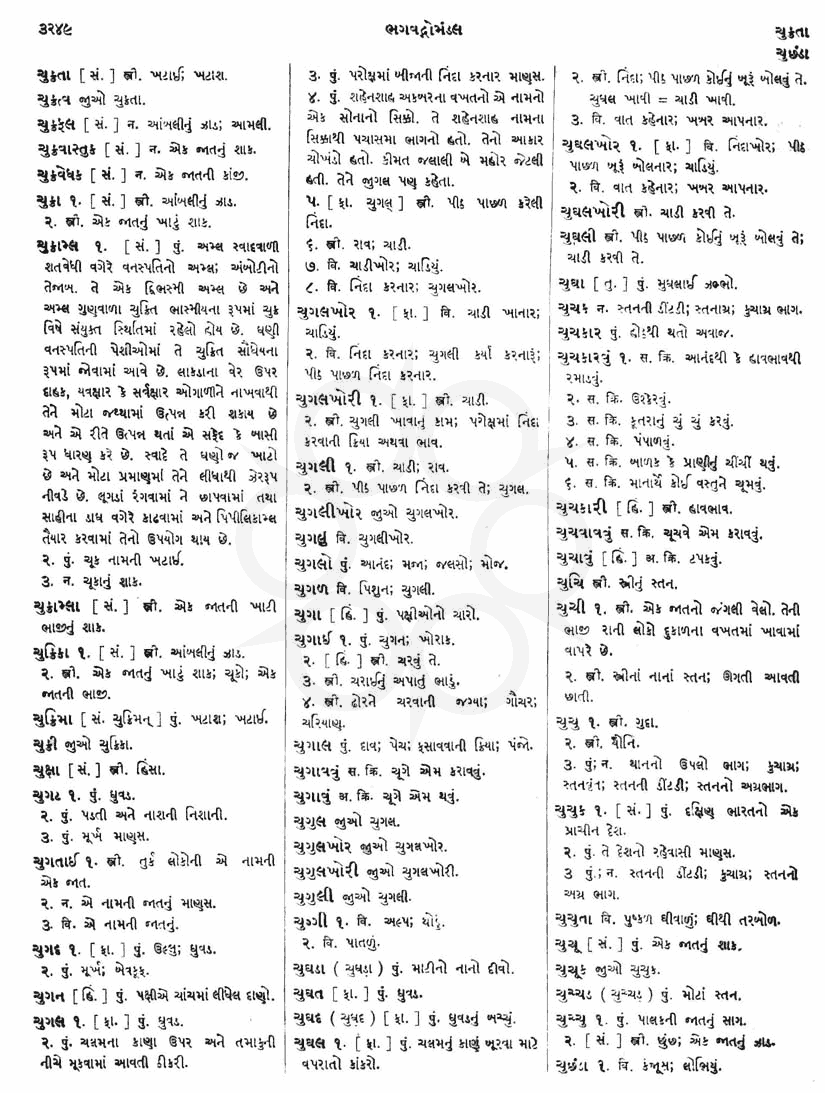 ૩૨૪૯
ભગવદ્ગોમંડલ
ચુક્રતા
ચુછંડા
ચુક્રતા [ સં. ] સ્ત્રી. ખટાઈ; ખટાશ.
ચુક્રત્વ જીઓ ચુક્રતા.
ચુક્રફલ [ સં. ] ન. આંબલીનું ઝાડ; આમલી.
ચુક્રવાસ્તુક [ સં. ] ન. એક જાતનું શાક.
ચુક્રવેધક [ સં. ] ન. એક જાતની કાંજી.
ચુક્રા ૧. [ સં. ] સ્ત્રી. આંબલીનું ઝાડ.
૨. સ્ત્રી. એક જાતનું ખાટું શાક.
ચુક્રામ્લ ૧. [ સં. ] પું. અમ્લ સ્વાદવાળી
શતવેધી વગેરે વનસ્પતિનો અમ્લ; અંબોડીનો
તેજાબ. તે એક દ્વિભસ્મી અમ્લ છે અને
અમ્લ ગુણવાળા ચુક્રિત ભાસ્મીયના રૂપમાં ચુક્ર
વિષે સંયુક્ત સ્થિતિમાં રહેલો હોય છે. ઘણી
વનસ્પતિની પેશીઓમાં તે ચુક્રિત સૌધેયના
રૂપમાં જોવામાં આવે છે. લાકડાના વેર ઉપર
દાહક, યવક્ષાર કે સર્વક્ષાર ઓગાળીને નાખવાથી
તેને મોટા જથ્થામાં ઉત્પન્ન કરી શકાય છે
અને એ રીતે ઉત્પન્ન થતાં એ સફેદ કે બાસી
રૂપ ધારણ કરે છે. સ્વાદે તે ઘણો જ ખાટો
છે અને મોટા પ્રમાણમાં તેને લીધાથી ઝેરરૂપ
નીવડે છે. લૂગડાં રંગવામાં ને છાપવામાં તથા
સાહીના ડાઘ વગેરે કાઢવામાં અને પિપીલિકામ્લ
તૈયાર કરવામાં તેનો ઉપયોગ થાય છે.
૨. પું. ચૂક નામની ખટાઈ.
૩. ન. ચૂકાનું શાક.
ચુક્રામ્લા [ સં. ] સ્ત્રી. એક જાતની ખાટી
ભાજીનું શાક.
ચુક્રિકા ૧. [ સં. ] સ્ત્રી. આંબલીનું ઝાડ.
૨. સ્ત્રી. એક જાતનું ખાટું શાક; ચૂકો; એક
જાતની ભાજી.
ચુક્રિમા [ સં. ચુક્રિમન્ ] પું. ખટાશ; ખટાઈ.
ચુક્રી જીઓ ચુક્રિકા.
ચુક્ષા [ સં. ] સ્ત્રી. હિંસા.
ચુગટ ૧. પું. ઘુવડ.
૨. પું. પડતી અને નાશની નિશાની.
૩. પું. મૂર્ખ માણસ.
ચુગતાઈ ૧. સ્ત્રી. તુર્ક લોકોની એ નામની
એક જાત.
૨. ન. એ નામની જાતનું માણસ.
૩. વિ. એ નામની જાતનું.
ચુગદ ૧. [ ફા. ] પું. ઉલ્લુ; ઘુવડ.
૨. પું. મૂર્ખ; બેવકૂફ.
ચુગન [ હિં. ] પું. પક્ષીએ ચાંચમાં લીધેલ દાણો.
ચુગલ ૧. [ ફા. ] પું. ઘુવડ.
૨. પું. ચલમના કાણા ઉપર અને તમાકુની
નીચે મૂકવામાં આવતી ઠીકરી.
૩. પું. પરોક્ષમાં બીજાની નિંદા કરનાર માણસ.
૪. પું. શહેનશાહ અકબરના વખતનો એ નામનો
એક સોનાનો સિક્કો. તે શહેનશાહ નામના
સિક્કાથી પચાસમા ભાગનો હતો. તેનો આકાર
ચોખંડો હતો. કીમત જલાલી બે મહોર જેટલી
હતી. તેને જુગલ પણ કહેતા.
૫. [ ફા. ચુગલ્ ] સ્ત્રી. પીઠ પાછળ કરેલી
નિંદા.
૬. સ્ત્રી. રાવ; ચાડી.
૭. વિ. ચાડીખોર; ચાડિયું.
૮. વિ. નિંદા કરનાર; ચુગલખોર.
ચુગલખોર ૧. [ ફા. ] વિ. ચાડી ખાનાર;
ચાડિયું.
૨. વિ. નિંદા કરનાર; ચુગલી કર્યા કરનારૂં;
પીઠ પાછળ નિંદા કરનાર.
ચુગલખોરી ૧. [ ફા. ] સ્ત્રી. ચાડી.
૨. સ્ત્રી. ચુગલી ખાવાનું કામ; પરોક્ષમાં નિંદા
કરવાની ક્રિયા અથવા ભાવ.
ચુગલી ૧. સ્ત્રી. ચાડી; રાવ.
૨. સ્ત્રી. પીઠ પાછળ નિંદા કરવી તે; ચુગલ.
ચુગલીખોર જીઓ ચુગલખોર.
ચુગલુ વિ. ચુગલીખોર.
ચુગલો પું. આનંદ; મજા; જલસો; મોજ.
ચુગળ વિ. પિશુન; ચુગલી.
ચુગા [ હિં. ] પું. પક્ષીઓનો ચારો.
ચુગાઈ ૧. પું. ચુગન; ખોરાક.
૨. [ હિં. ] સ્ત્રી. ચરવું તે.
૩. સ્ત્રી. ચરાઈનું અપાતું ભાડું.
૪. સ્ત્રી. ઢોરને ચરવાની જગ્યા; ગૌચર;
ચરિયાણ.
ચુગાલ પું. દાવ; પેચ; ફસાવવાની ક્રિયા; પંજો.
ચુગાવવું સ. ક્રિ. ચૂગે એમ કરાવવું.
ચુગાવું અ. ક્રિ. ચૂગે એમ થવું.
ચુગુલ જીઓ ચુગલ.
ચુગુલખોર જીઓ ચુગલખોર.
ચુગુલખોરી જીઓ ચુગલખોરી.
ચુગુલી જીઓ ચુગલી.
ચુગ્ગી ૧. વિ. અલ્પ; થોડું.
૨. વિ. પાતળું.
ચુઘડા ( ચુઘડ઼ા ) પું. માટીનો નાનો દીવો.
ચુઘત [ ફા. ] પું. ઘુવડ.
ચુઘદ ( ચુઘ઼દ ) [ ફા. ] પું. ઘુવડનું બચ્ચું.
ચુઘલ ૧. [ ફા. ] પું. ચલમનું કાણું બૂરવા માટે
વપરાતો કાંકરો.
૨. સ્ત્રી. નિંદા; પીઠ પાછળ કોઈનું બૂરૂં બોલવું તે.
ચુઘલ ખાવી = ચાડી ખાવી.
૩. વિ. વાત કહેનાર; ખબર આપનાર.
ચુઘલખોર ૧. [ ફા. ] વિ. નિંદાખોર; પીઠ
પાછળ બૂરૂં બોલનાર; ચાડિયું.
૨. વિ. વાત કહેનાર; ખબર આપનાર.
ચુઘલખોરી સ્ત્રી. ચાડી કરવી તે.
ચુઘલી સ્ત્રી. પીઠ પાછળ કોઈનું બૂરૂં બોલવું તે;
ચાડી કરવી તે.
ચુઘા [ તુ. ] પું. મુઘલાઈ ઝબ્ભો.
ચુચક ન. સ્તનની ડીંટડી; સ્તનાગ્ર; કુચાગ્ર ભાગ.
ચુચકાર પું. હોઠથી થતો અવાજ.
ચુચકારવું ૧. સ. ક્રિ. આનંદથી કે હાવભાવથી
રમાડવું.
૨. સ. ક્રિ. ઉશ્કેરવું.
૩. સ. ક્રિ. કૂતરાનું ચું ચું કરવું.
૪. સ. ક્રિ. પંપાળવું.
૫. સ. ક્રિ. બાળક કે પ્રાણીનું ચીંચીં થવું.
૬. સ. ક્રિ. માનાર્થે કોઈ વસ્તુને ચૂમવું.
ચુચકારી [ હિં. ] સ્ત્રી. હાવભાવ.
ચુચવાવવું સ. ક્રિ. ચૂચવે એમ કરાવવું.
ચુચાવું [ હિં. ] અ. ક્રિ. ટપકવું.
ચુચિ સ્ત્રી. સ્ત્રીનું સ્તન.
ચુચી ૧. સ્ત્રી. એક જાતનો જંગલી વેલો. તેની
ભાજી રાની લોકો દુકાળના વખતમાં ખાવામાં
વાપરે છે.
૨. સ્ત્રી. સ્ત્રીનાં નાનાં સ્તન; ઊગતી આવતી
છાતી.
ચુચુ ૧. સ્ત્રી. ગુદા.
૨. સ્ત્રી. યોનિ.
૩. પું; ન. થાનનો ઉપલો ભાગ; કુચાગ્ર;
સ્તનવૃંત; સ્તનની ડીંટડી; સ્તનનો અગ્રભાગ.
ચુચુક ૧. [ સં. ] પું. દક્ષિણ ભારતનો એક
પ્રાચીન દેશ.
૨. પું. તે દેશનો રહેવાસી માણસ.
૩ પું.; ન. સ્તનની ડીંટડી; કુચાગ્ર; સ્તનનો
અગ્ર ભાગ.
ચુચુતા વિ. પુષ્કળ ઘીવાળું; ઘીથી તરબોળ.
ચુચૂ [ સં. ] પું. એક જાતનું શાક.
ચુચૂક જીઓ ચુચુક.
ચુચ્ચડ ( ચુચ્ચડ઼ ) પું. મોટાં સ્તન.
ચુચ્ચુ ૧. પું. પાલકની જાતનું સાગ.
૨. [ સં. ] સ્ત્રી. છુંછ; એક જાતનું ઝાડ.
ચુછંડા ૧. વિ. કંજૂસ; લોભિયું.